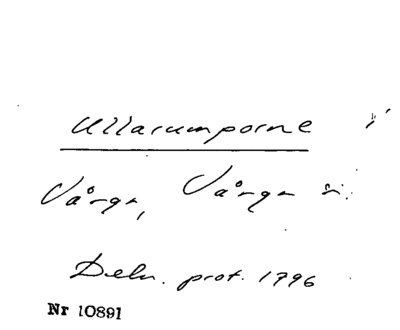 Ullarumporne i
Vårgn, Vårgn sn.
Deln. prot. 1796
Nr 10891